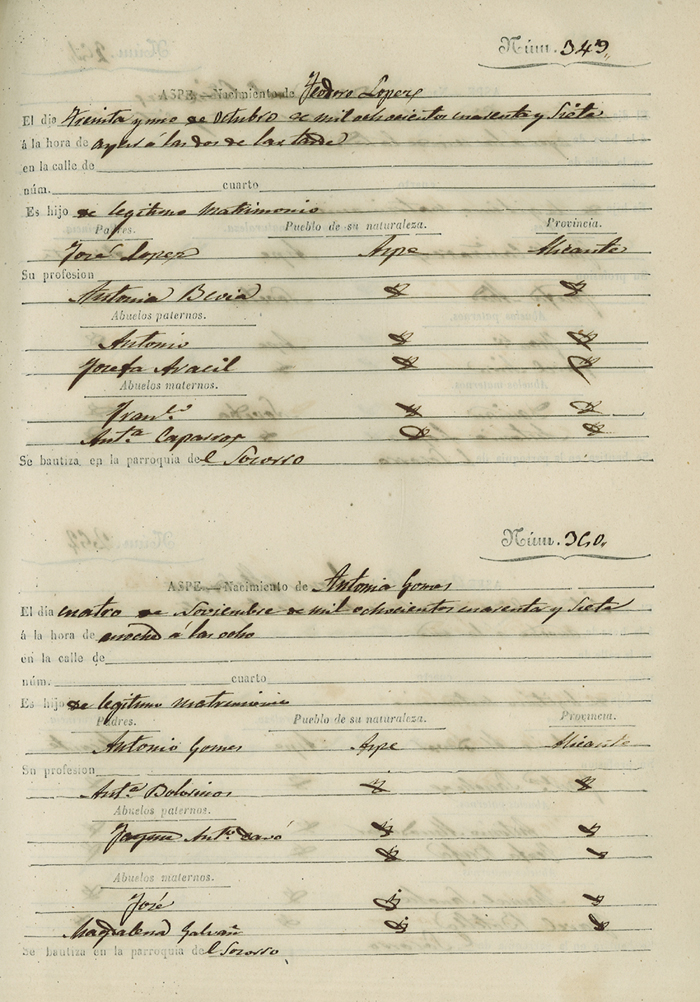 Núm. 349.
ASPE.—Nacimiento de Teodoro Lopez
El dia treinta y uno de Octubre de mil ochocientos cuarenta y siete
á la hora de ayer á las dos de la tarde
en la calle de
núm. cuarto
Es hijo de legitimo matrimonio
Padres. Pueblo de su naturaleza. Provincia.
José Lopez Aspe Alicante
Su profesion
Antonia Bevia
Abuelos paternos.
Antonio
Josefa Aracil
Abuelos maternos.
Fran.co
Ant.a Caparros
Se bautiza en la parroquia del Socorro
Núm. 360.
ASPE.—Nacimiento de Antonia Gomes
El dia cuatro de Noviembre de mil ochocientos cuarenta y siete
á la hora de anoche á las ocho
en la calle de
núm. cuarto
Es hijo de legitimo matrimonio
Padres. Pueblo de su naturaleza. Provincia.
Antonio Gomes Aspe Alicante
Su profesion
Ant.a
Abuelos paternos.
Ant.a
Abuelos maternos.
José
Magdalena Galvañ
Se bautiza en la parroquia del Socorro